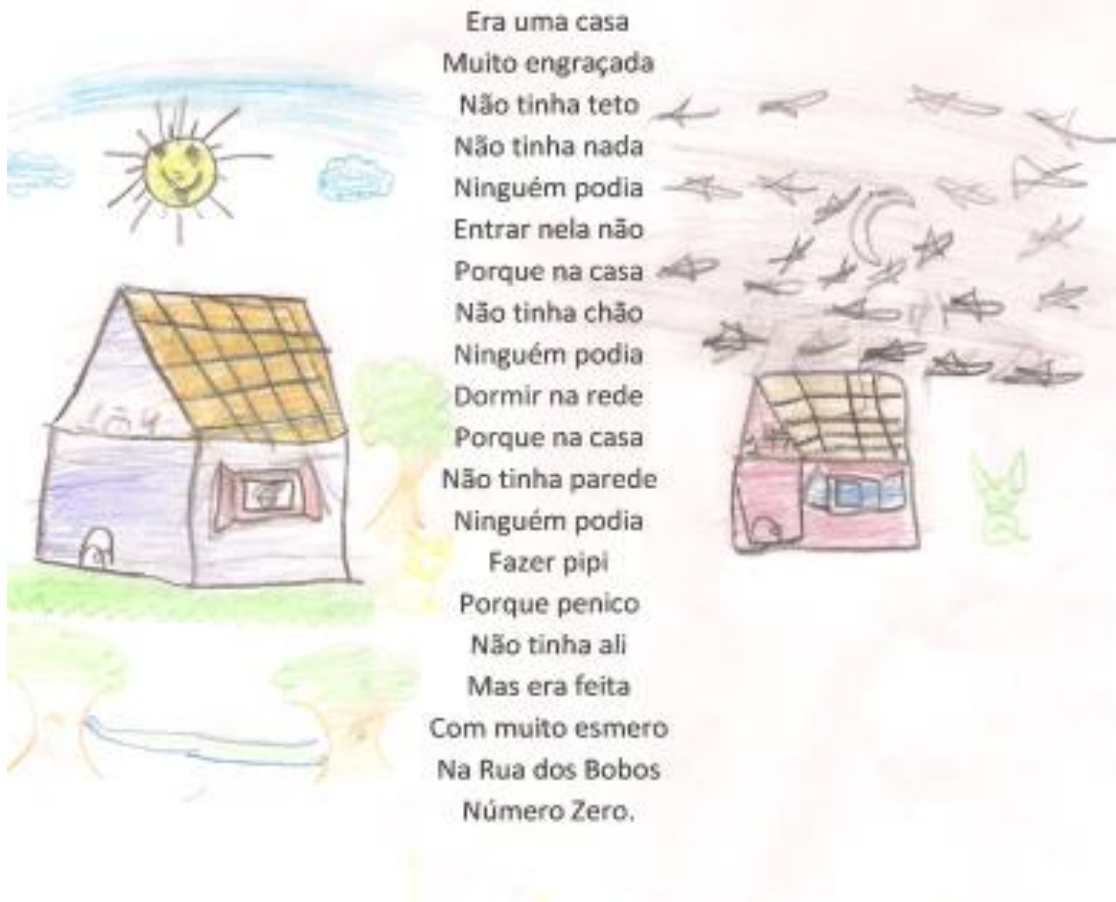 Era uma casa
Muito engraçada
Não tinha teto
Não tinha nada
Ninguém podia
Entrar nela não
Porque na casa
Não tinha chão
Ninguém podia
Dormir na rede
Porque na casa
Não tinha parede
Ninguém podia
Fazer pipi
Porque penico
Não tinha ali
Mas era feita
Com muito esmero
Na Rua dos Bobos
Número Zero.